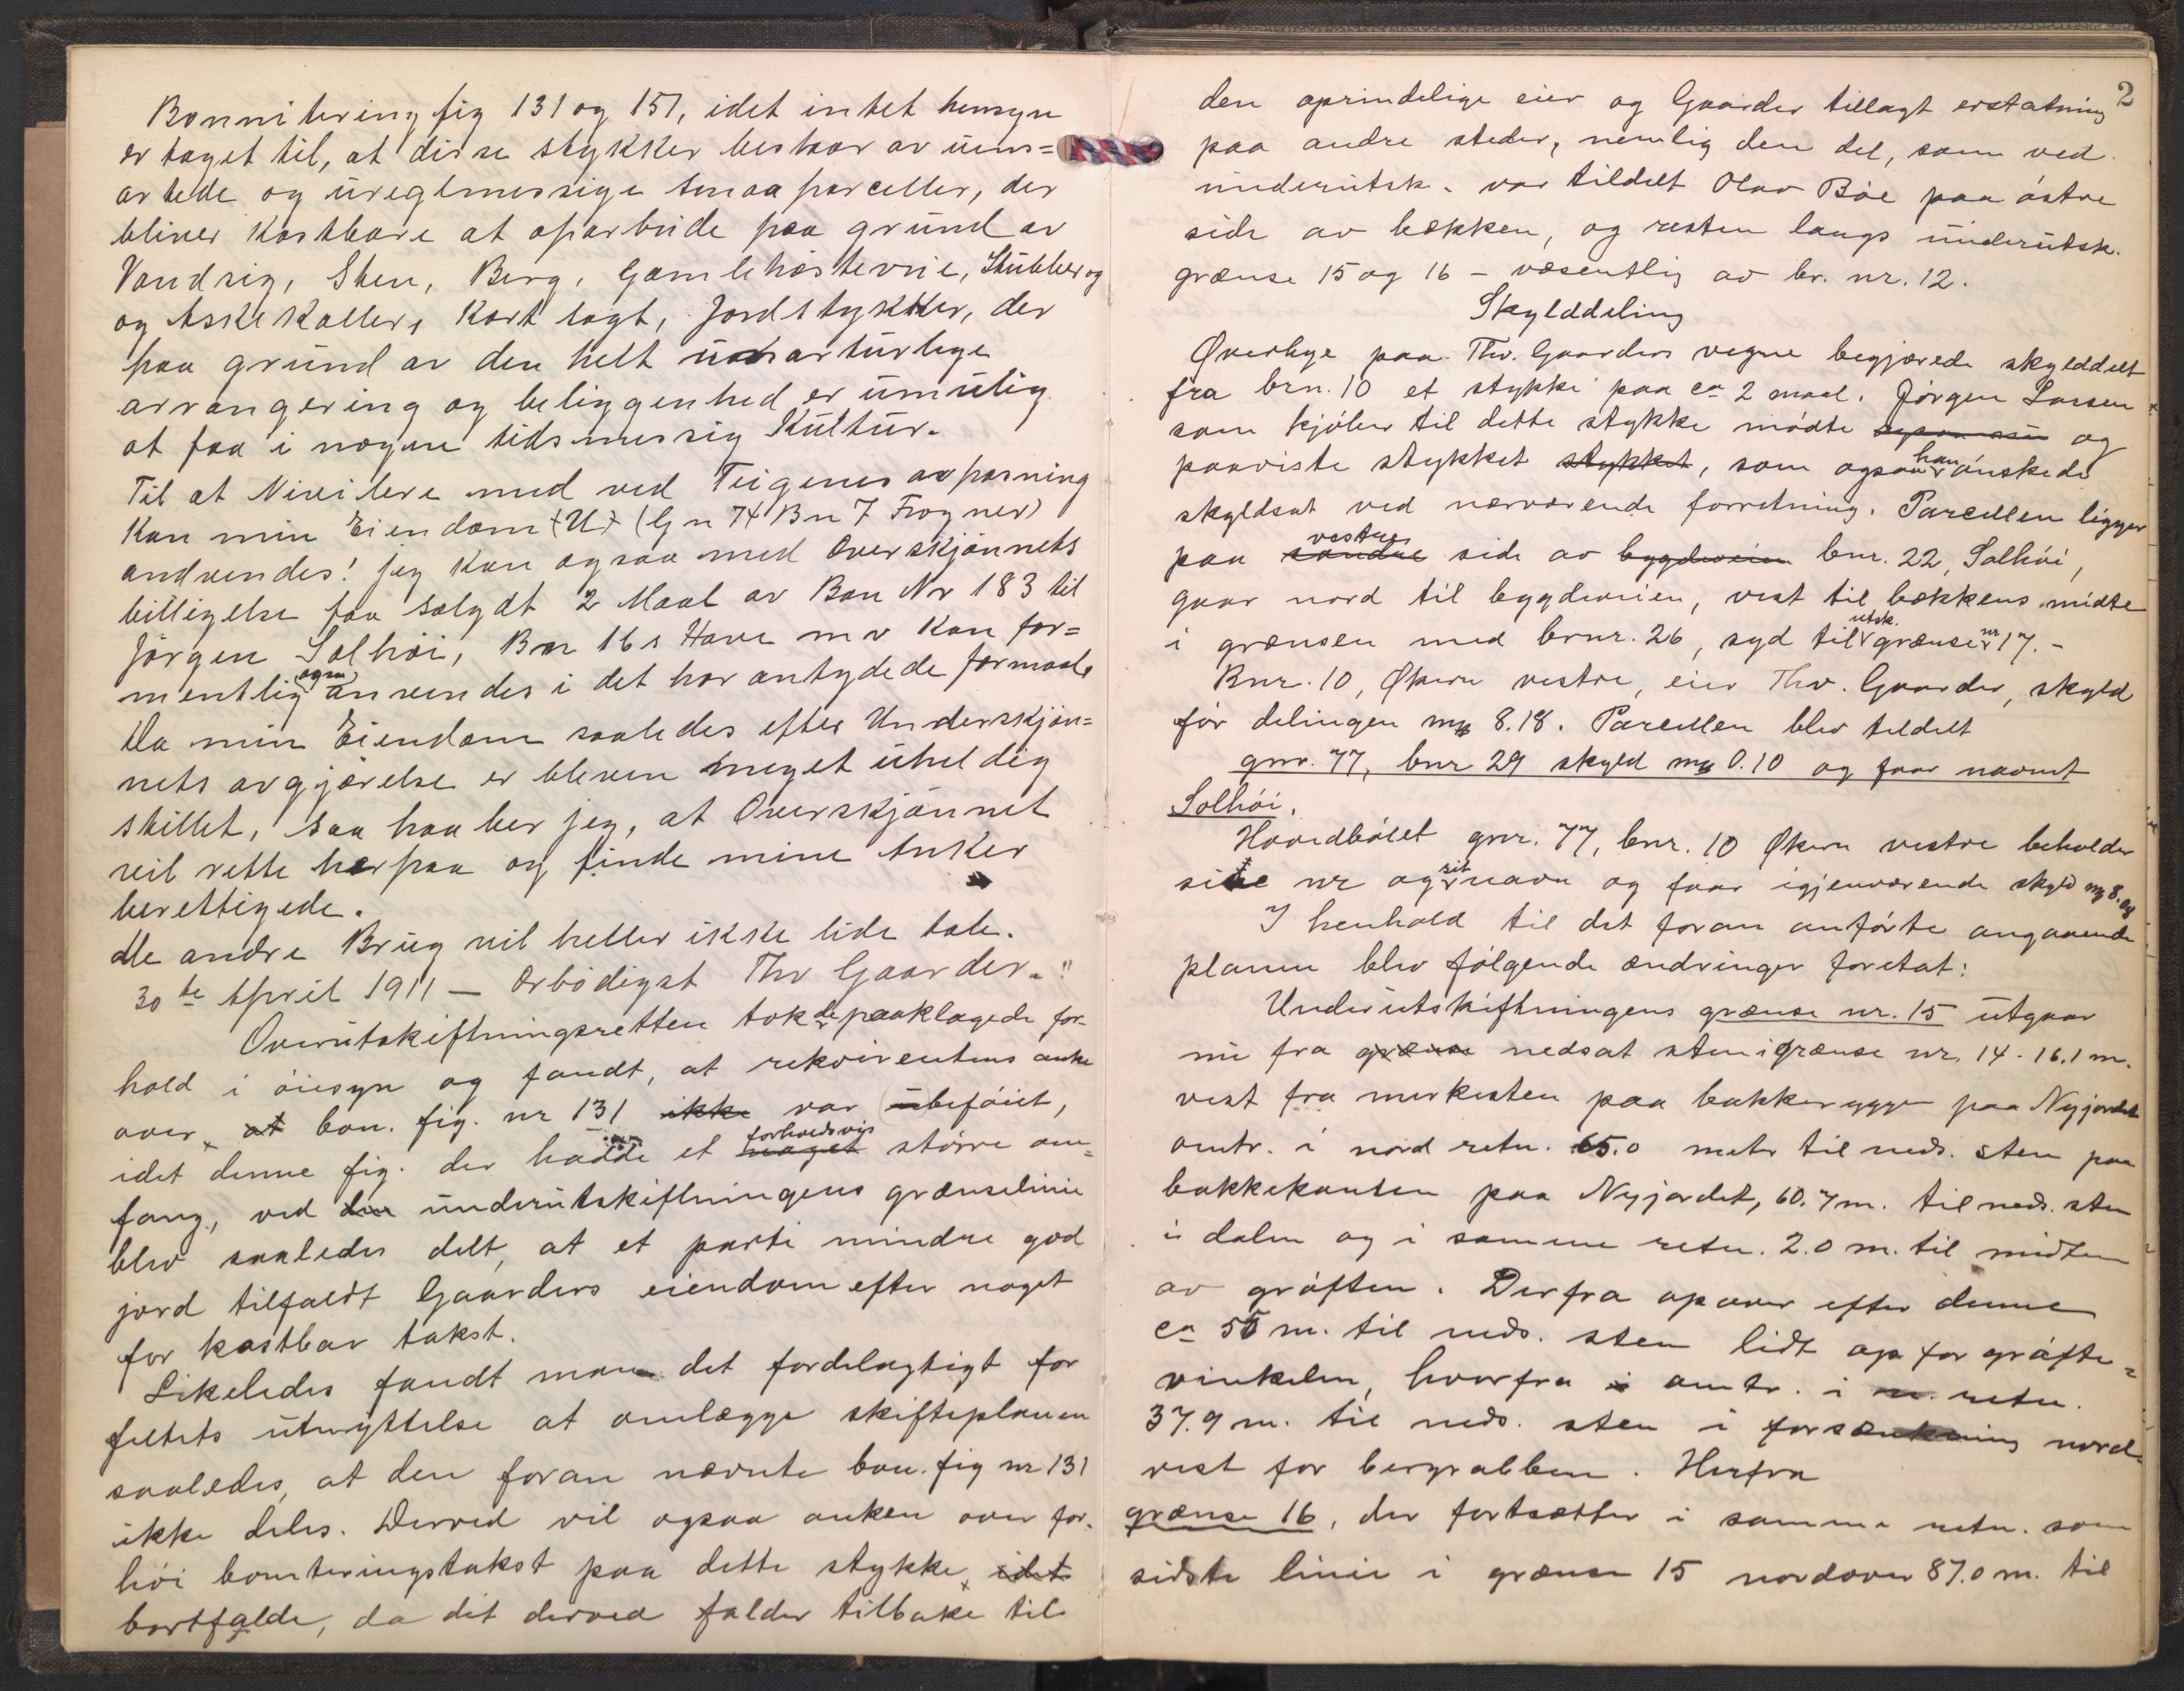 Bonnitering fig 131 og 151, idet intet hensyn
er taget til, at disse stykker bestaar av uens=
artede og uregelmessige smaa parceller, der
bliver Kostbare at oparbeide paa grund av
Vandsig, Sten, Berg, Gamlehæsteveie, Stubber og
og Askekaller, Kort sagt, Jordstykker, der
paa grund av den helt unaturlige
arrangering og beliggenhed er umulig
at faa i nogen tidsmessig Kultur.
Til at Nivilere med ved Teigenes avpasning
Kan min Eiendom (U) (Gn 74 Bn 7 Frogner)
andvendes! jeg kan ogsaa med Overskjønnets
billigelse faa solgdt 2 Maal av Bon Nr 183 til
Jørgen Solhøi, Bn 16s Have m v Kan for=
mentlig ogsaa anvendes i det her antydede formaal.
Da min Eiendom saaledes efter Underskjøn=
nets avgjørelse er bleven meget uheldig
stillet, saa haaber jeg, at Overskjønnet
vil rette herpaa og finde mine Anker
berettigede.
de andre Brug vil heller ikke lide tab.
30te April 1911 — Ærbødigst Thv Gaarder."
Overutskiftningsretten tok de paaklagede for-
hold i øiesyn og fandt, at rekvirentens anke
over at bon. fig. nr 131 ikke var ubeføiet,
idet denne fig. der hadde et noget forholdsvis større om=
fang, ved den underutskiftningens grænselinie
blev saaledes delt, at et parti mindre god
jord tilfaldt Gaarders eiendom efter noget
for kostbar takst.
Likeledes fandt man det fordelagtigt for
feltets utnyttelse at omlægge skifteplanen
saaledes, at den foran nævnte bon. fig nr 131
ikke deles. Derved vil ogsaa anken over for-
høi boniteringstakst paa dette stykke idet
bortfalde, da det derved falder tilbake til
2
den oprindelige eier og Gaarder tillagt erstatning
paa andre steder, nemlig den del, som ved
underutsk. var tildelt Olav Bøe paa østre
side av bekken, og resten langs underutsk.
grænse 15 og 16 – væsentlig av br. nr. 12.
Skylddeling
Øverbye paa Thv. Gaarders vegne begjærede skylddelt
fra brn. 10 et stykke paa ca 2 maal. Jørgen Larsen
som kjøber til dette stykke mødte og
paaviste stykket stykket, som ogsaa han ønskede
skyldsat ved nærværende forretning. Parcellen ligger
paa søndre vestre side av bygdeveien bnr. 22, Solhøi,
gaar nord til bygdeveien, vest til bækkens midte
i grænsen med brnr. 26, syd til utsk. grænse nr 17.–
Bnr. 10, Økern vestre, eier Thv. Gaarder, skyld
før delingen mk 8.18. Parcellen blev tildelt
gnr. 77, bnr 29 skyld mk 0.10 og faar navnet
Solhøi.
Hovedbølet gnr. 77, bnr. 10 Økern vestre beholder
sitte nr og sit navn og faar igjenværende skyld mk 8.08
I henhold til det foran anførte angaaende
planen blev følgende ændringer foretat:
Underutskiftningens grænse nr. 15 utgaar
nu fra grænse nedsat sten i grænse nr. 14 - 16.1 m.
vest fra merkesten paa bakkeryggen paa Nyjordet
omtr. i nord retn. 65.0 meter til neds. sten paa
bakkekanten paa Nyjordet, 60.7 m. til neds. sten
i dalen og i samme retn. 2.0 m. til midten
av grøften. Derfra opover efter denne
ca 55 m. til neds. sten lidt op for grøfte=
vinkelen, hvorfra i omtr. i n. retn.
37.9 m. til neds. sten i forsænkning nord=
vest for bergrabben. Herfra
grænse 16, der fortsætter i samme retn. som
sidste linie i grænse 15 nordover 87.0 m. til